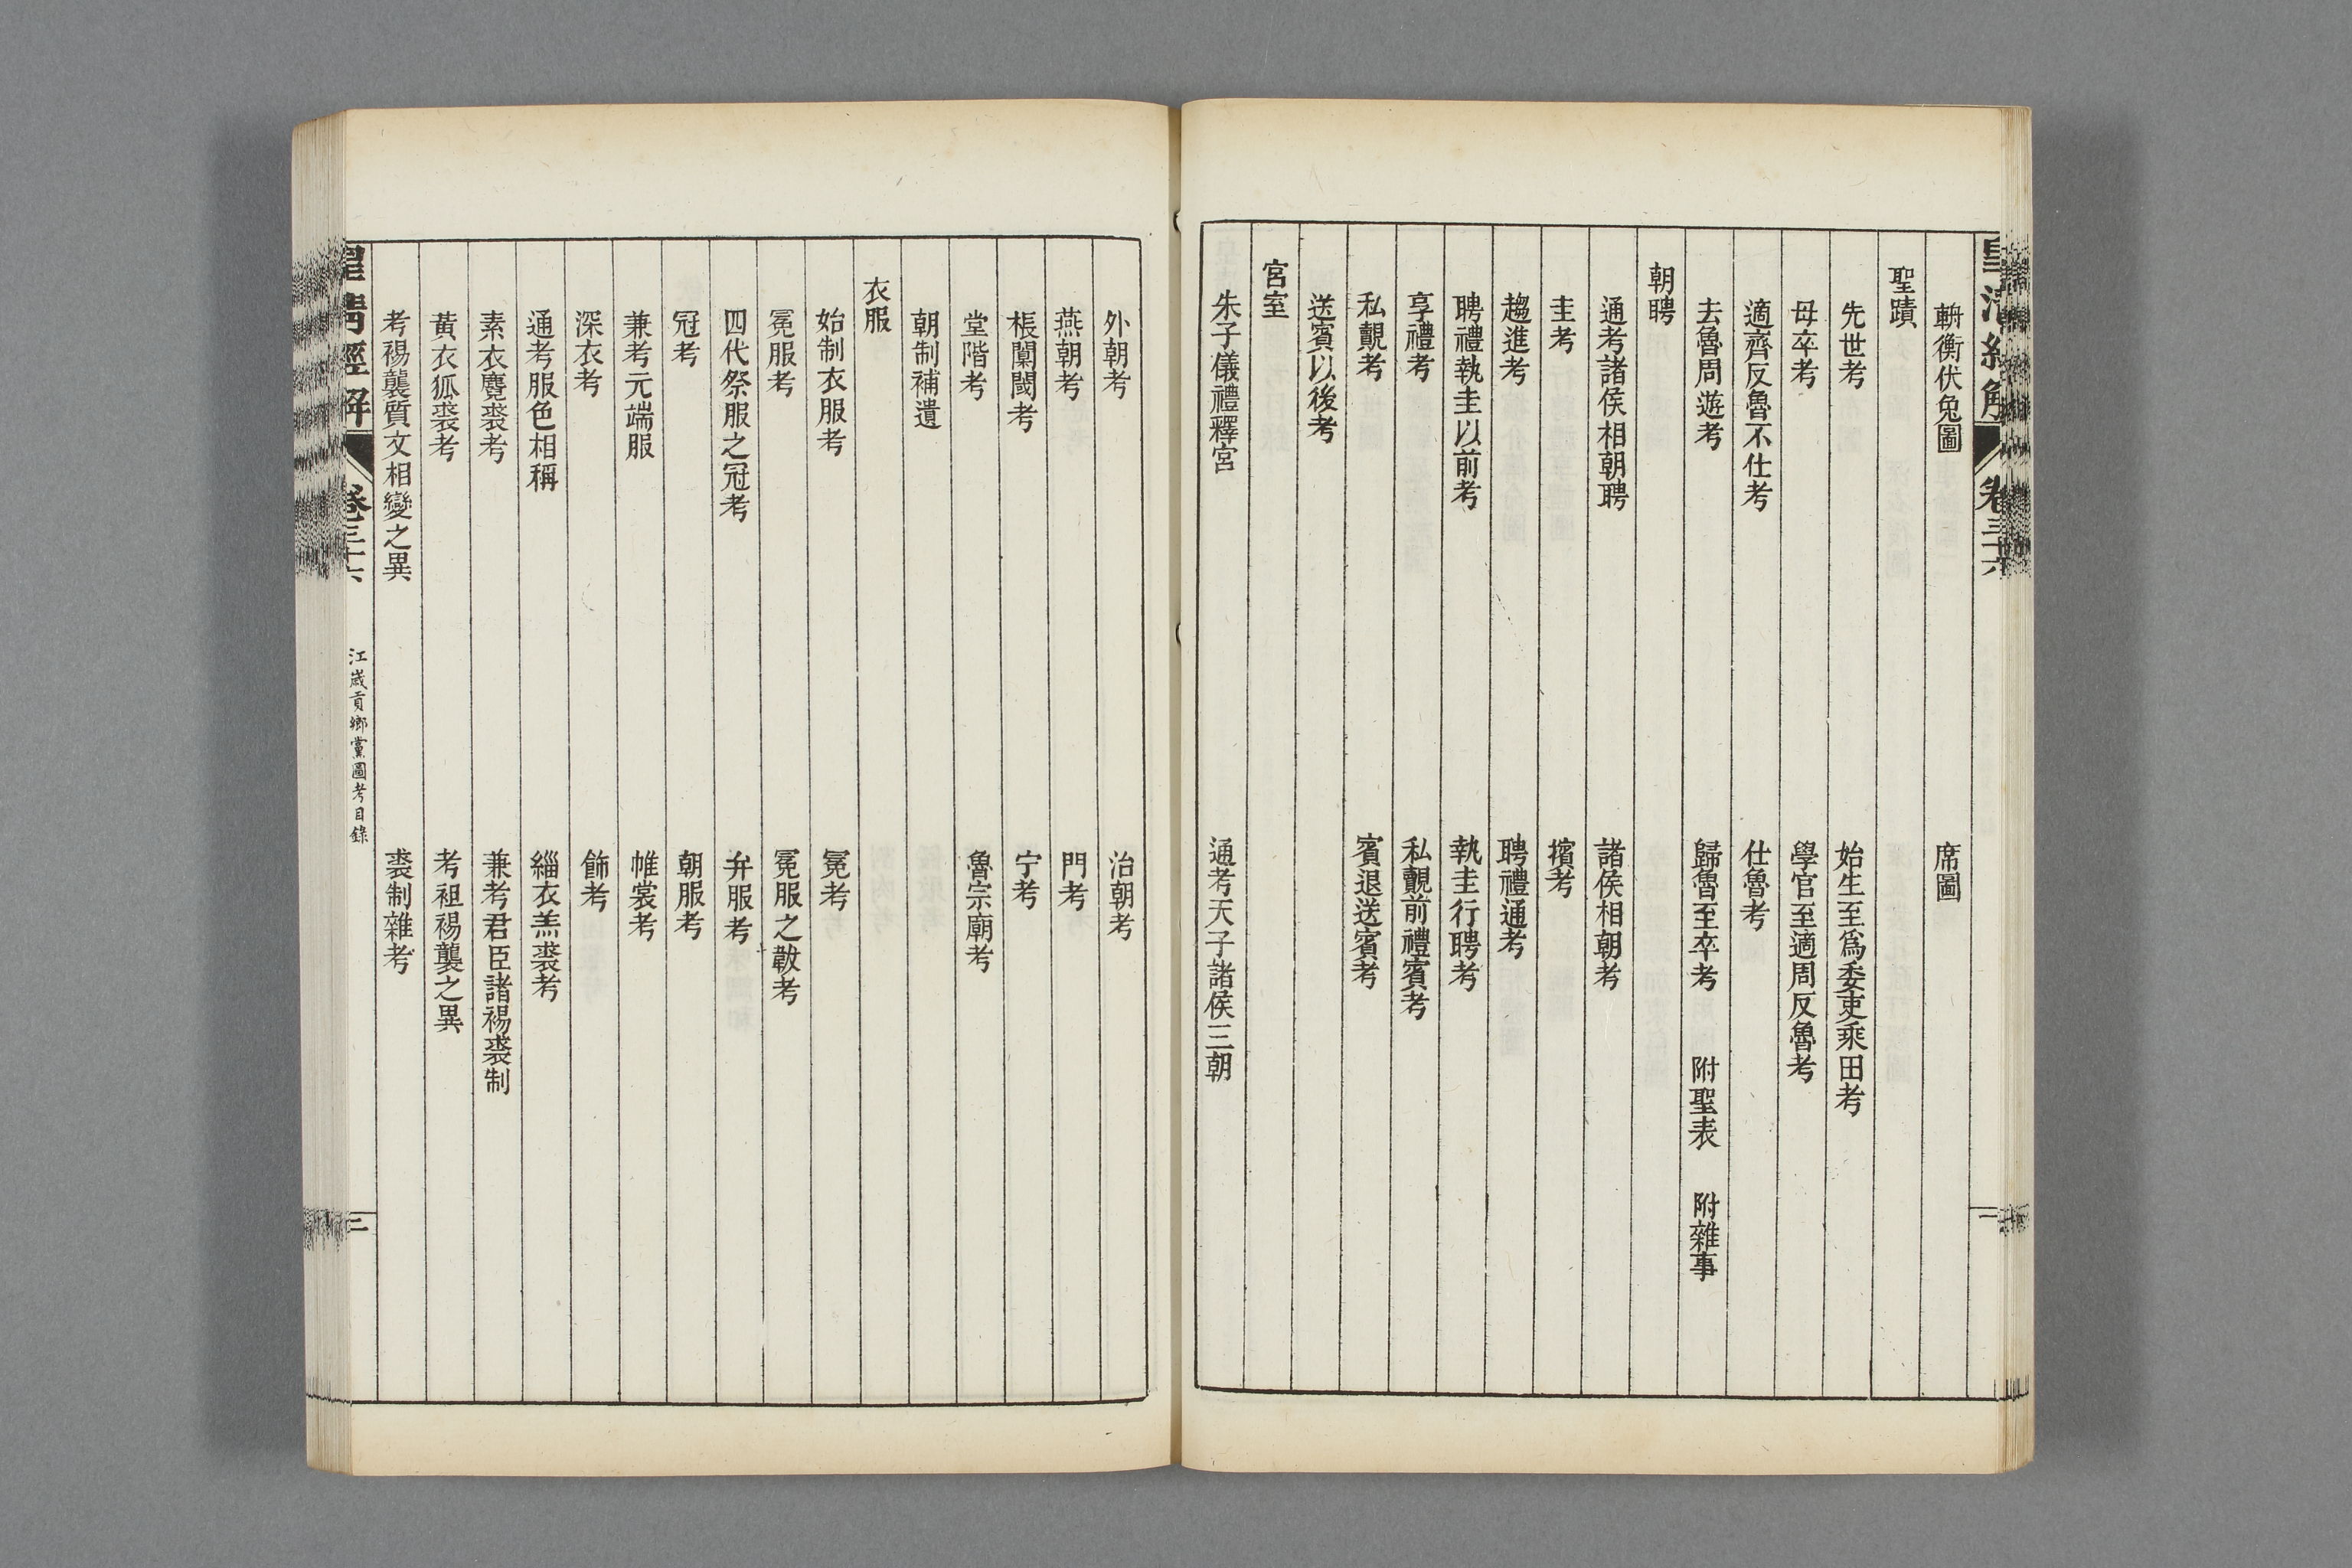 皇清經解 卷三十六 二
輈衡伏兔圖 席圖
聖蹟
先世考 始生至爲委吏乘田考
母卒考 學官至適周反魯考
適齊反魯不仕考 仕魯考
去魯周遊考 歸魯至卒考 附聖表 附雜事
朝聘
通考諸侯相朝聘 諸侯相朝考
圭考 擯考
趨進考 聘禮通考
聘禮執圭以前考 執圭行聘考
享禮考 私覿前禮賓考
私覿考 賓退送賓考
送賓以後考
宮室
朱子儀禮釋宮 通考天子諸侯三朝
外朝考 治朝考
燕朝考 門考
棖闑閾考 宁考
堂階考 魯宗廟考
朝制補遺
衣服
始制衣服考 冕考
冕服考 冕服之韍考
四代祭服之冠考 弁服考
冠考 朝服考
兼考元端服 帷裳考
深衣考 飾考
通考服色相稱 緇衣羔裘考
素衣麑裘考 兼考君臣諸裼裘制
黃衣狐裘考 考袒裼襲之異
考裼襲質文相變之異 裘制雜考
皇清經解 卷三十六 江歲貢鄉黨圖考目錄 三